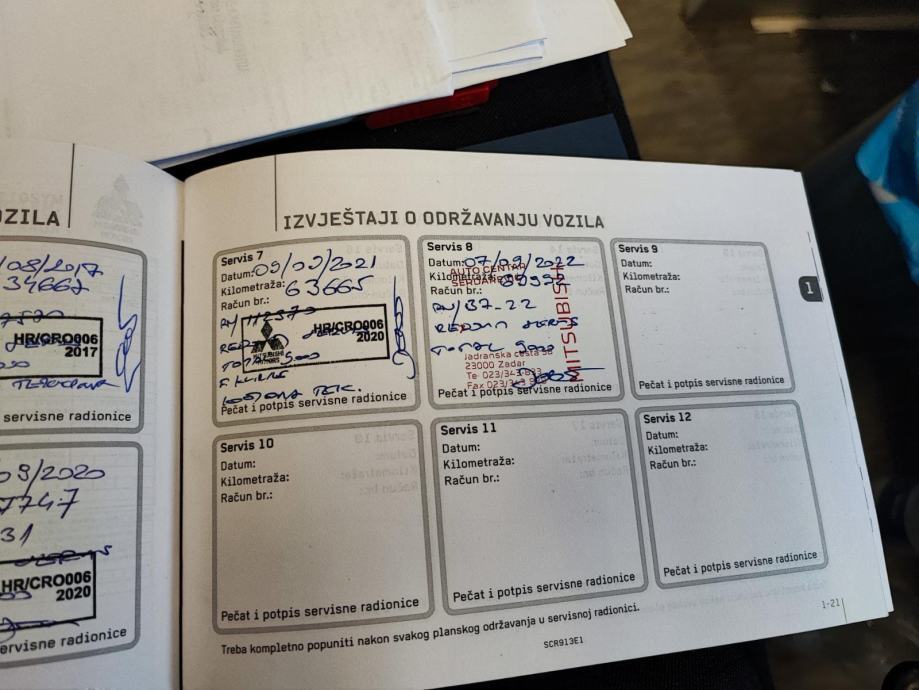 OZILA
/08/2017
34667
HR/CRO006
2017
ervisne radionice
09/2020
7747
31
HR/CRO006
2020
ervisne radionice
IZVJEŠTAJI O ODRŽAVANJU VOZILA
Servis 7
Datum: 09/09/2021
Kilometraža: 63665
Račun br.:
HR/CRO006
2020
MITSUBISHI
MOTORS
Pečat i potpis servisne radionice
Servis 8
Datum: 07/09/2022
Kilometraža:
AUTO CENTAR
Račun br.:
37-22
TOTAL 9000
MITSUBISHI
Jadranska cesta
23000 Zadar
Pečat i potpis servisne radionice
Servis 9
Datum:
Kilometraža:
Račun br.:
Pečat i potpis servisne radionice
1
Servis 10
Datum:
Kilometraža:
Račun br.:
Pečat i potpis servisne radionice
Servis 11
Datum:
Kilometraža:
Račun br.:
Pečat i potpis servisne radionice
Servis 12
Datum:
Kilometraža:
Račun br.:
Pečat i potpis servisne radionice
Treba kompletno popuniti nakon svakog planskog održavanja u servisnoj radionici.
SCR913E1
1-21